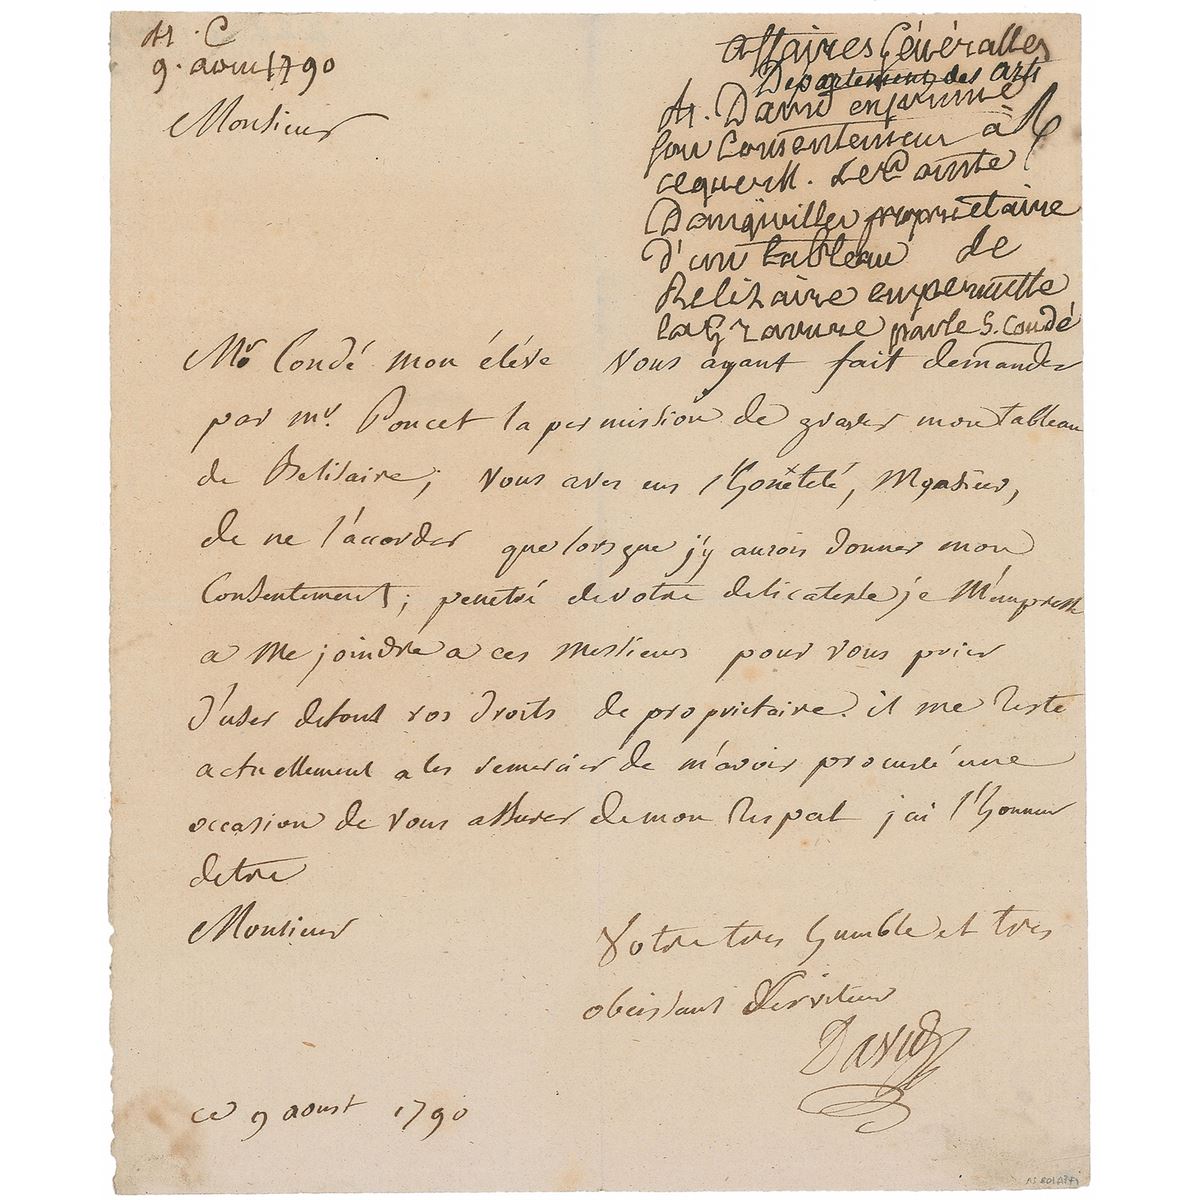 9. aoust 1790
Monsieur
affaires Généralles
Departement des arts
M. David exprime
son Consentement à
ce que M. Le Comte
Dangiviller proprietaire
d'un tableau de
Belizaire en permette
la Gravure par le S. Condé
Mr Condé mon élève vous ayant fait demander
par mr. Poncet la permission de graver mon tableau
de Belisaire; vous avez eus l'honêteté, Monsieur,
de ne l'accorder que lorsque j'y aurois donner mon
Consentement; penetré de votre delicatesse je M'empresse
a me joindre a ces messieurs pour vous prier
d'user de tout vos droits de proprietaire. il me reste
actuellement a les remercier de m'avoir procuré une
occasion de vous assurer de mon respect j'ai l'honneur
detre
Monsieur
Votre tres humble et tres
obeissant serviteur
David
ce 9 aoust 1790